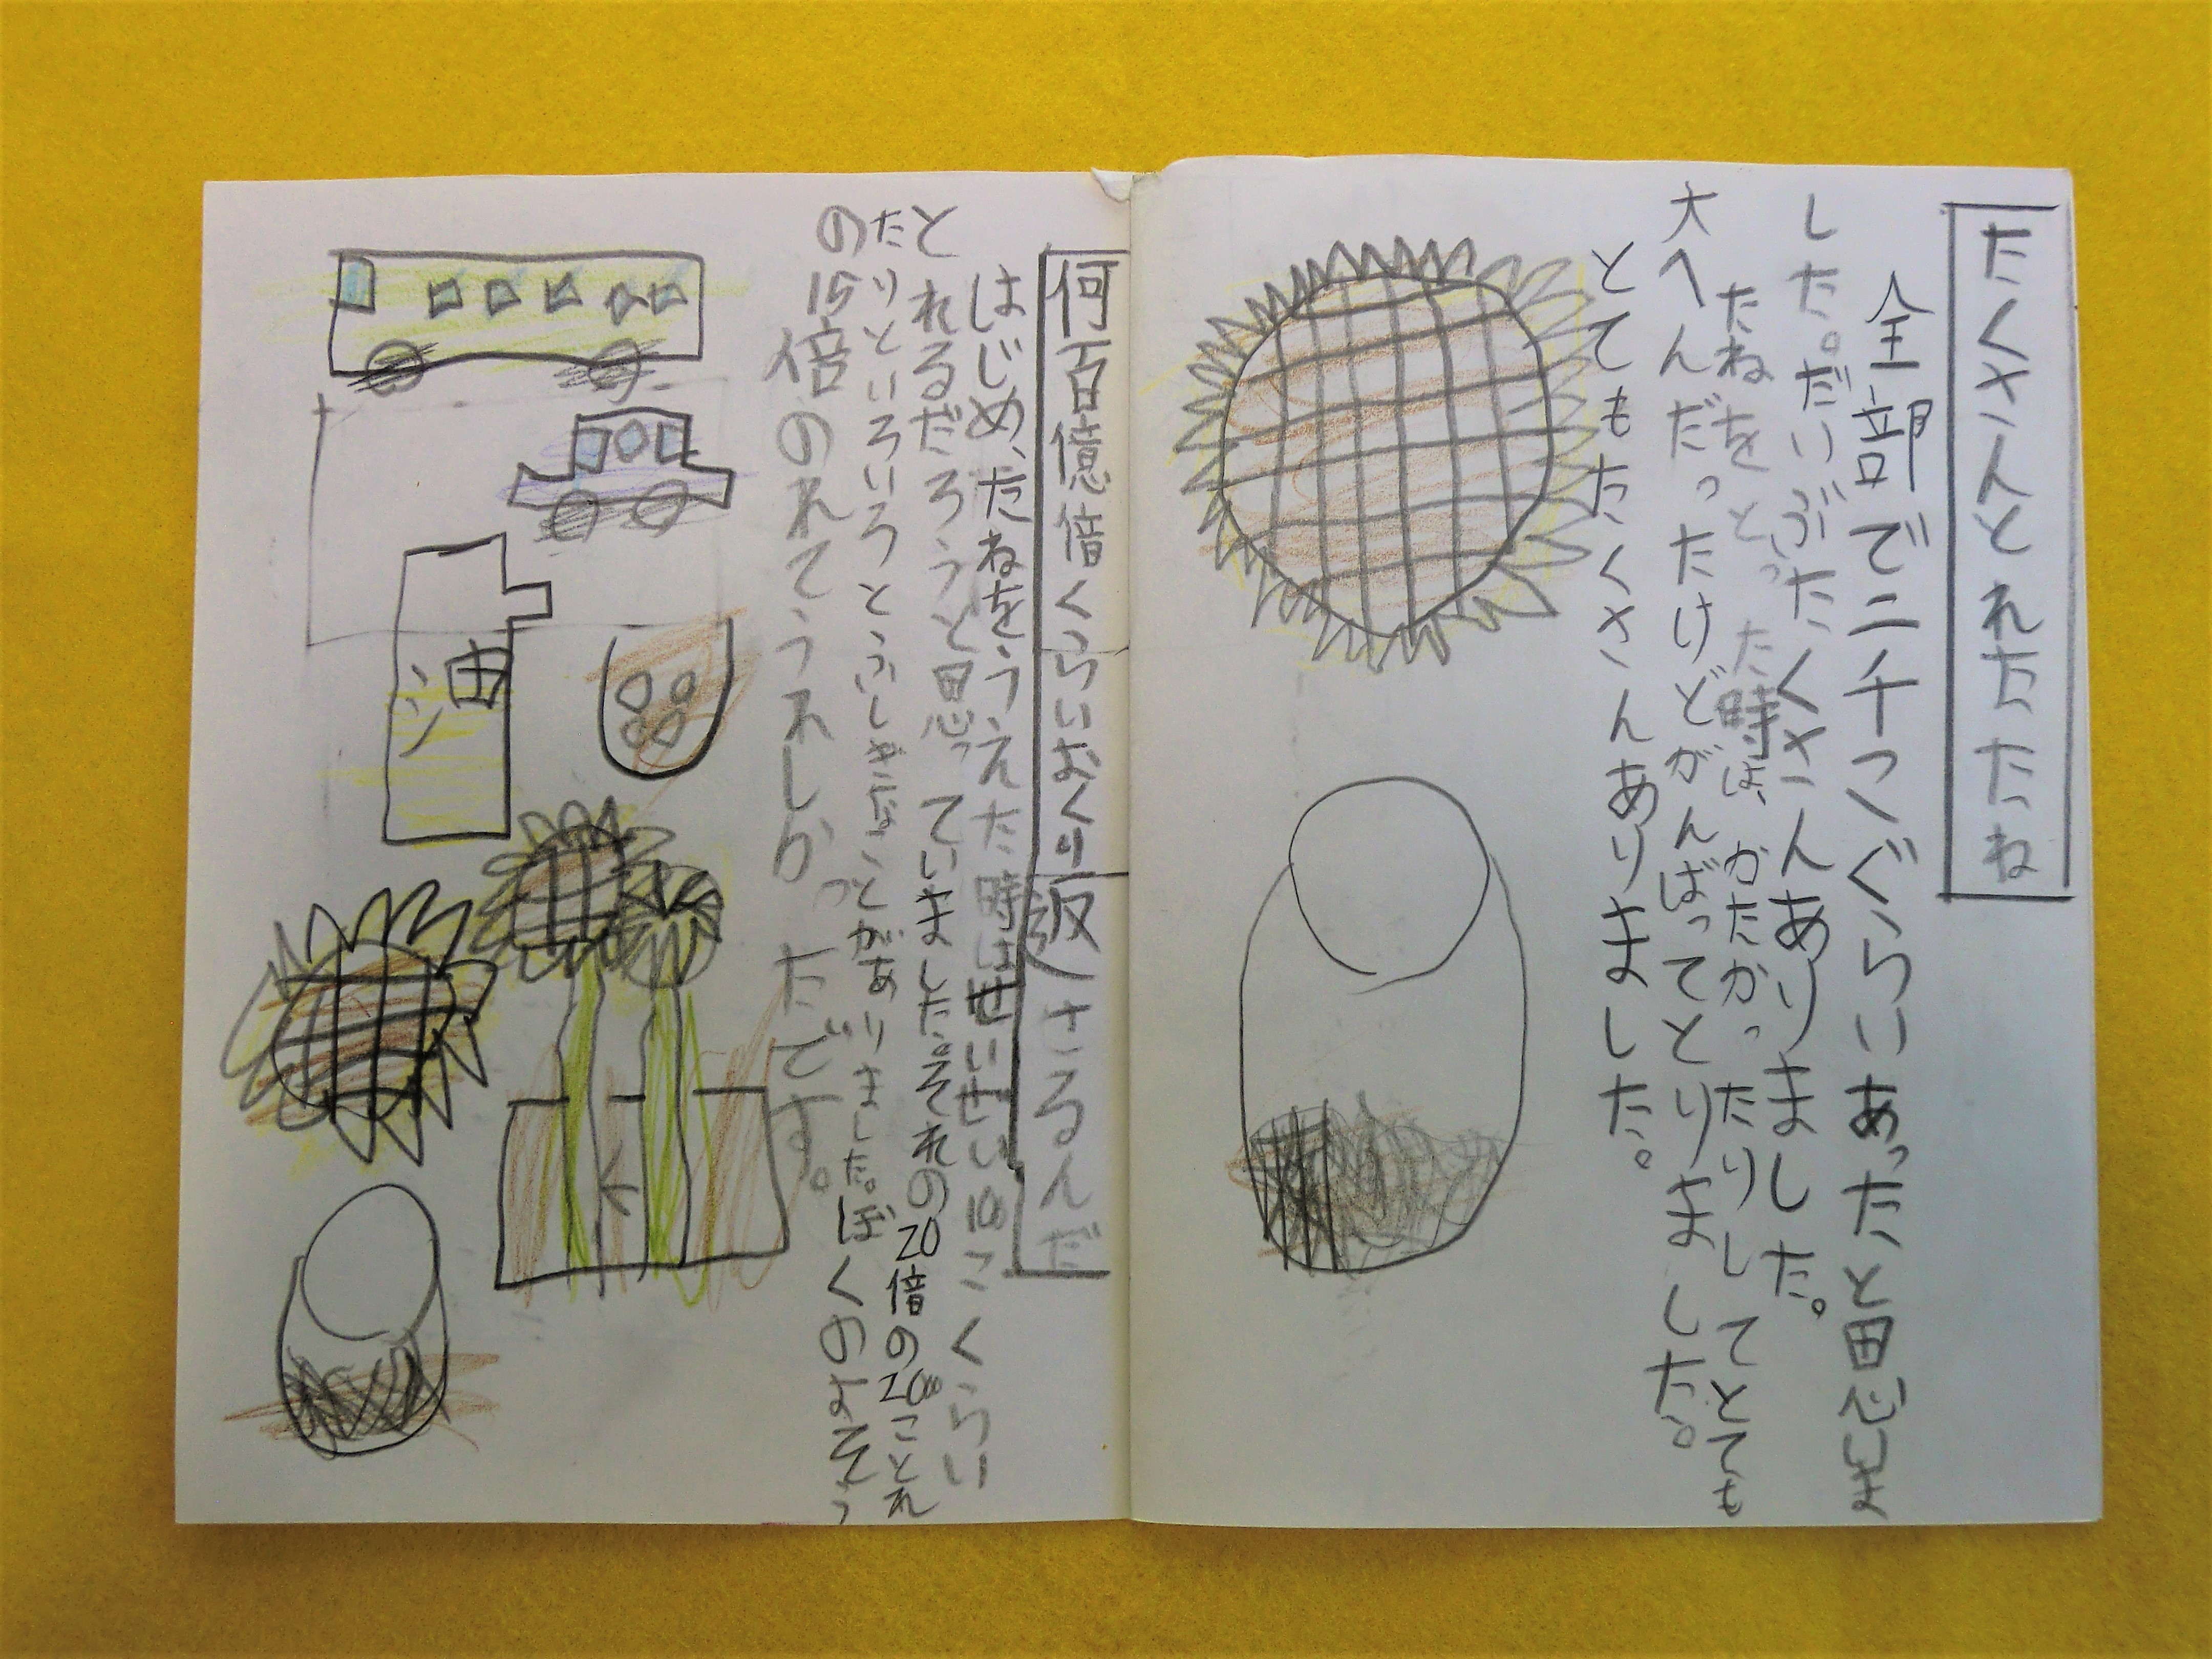 たくさんとれたたね
全部で二千つぐらいあったと思いま
した。だいぶたくさんありました。
たねをとった時は、かたかったりしてとても
大へんだったけどがんばってとりました。
とてもたくさんありました。
何百億倍くらいおくり返さるんだ
はじめ、たねをうえた時はせいぜい10こくらい
とれるだろうと思っていました。それの20倍の200ことれ
たりといろいろとふしぎなことがありました。ぼくのよそう
の15倍のれてうれしかったです。
油